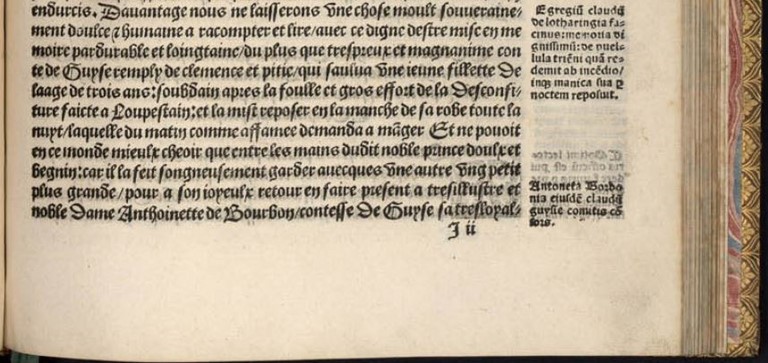 endurcis. Davantage nous ne laisserons vne chose moult souueraine⸗
ment doulce ⁊ humaine a racompter et lire/auec ce digne destre mise en me
moire pardurable et loingtaine/du plus que trespreux et magnanime con
te de Guyse remply de clemence et pitie/qui saulua vne ieune fillette de
laage de trois ans: soubdain apres la foulle et gros effort de la Desconfi⸗
ture faicte a Loupestain: et la mist reposer en la manche de sa robe toute la
nuyt/laquelle du matin comme affamee demanda a mãger Et ne pouoit
en ce monde mieulx cheoir que entre les mains dudit noble prince doulx et
begnin: car il la feit songneusement garder auecques vne autre vng petit
plus grande/pour a son ioyeulx retour en faire present a tresillustre et
noble Dame Anthoinette de Bourbon/contesse de Guyse sa tresloyal⸗
J ii
Egregiũ claudij
de lotharingia fa⸗
cinus: memoria di
gnissimũ: de puel⸗
lula triẽni quã re⸗
demit ab incẽdio/
inq; manica sua p
noctem reposuit.
Antoneta Borbo
nia eiusdẽ claudij
guysie comitis cõ
sors.